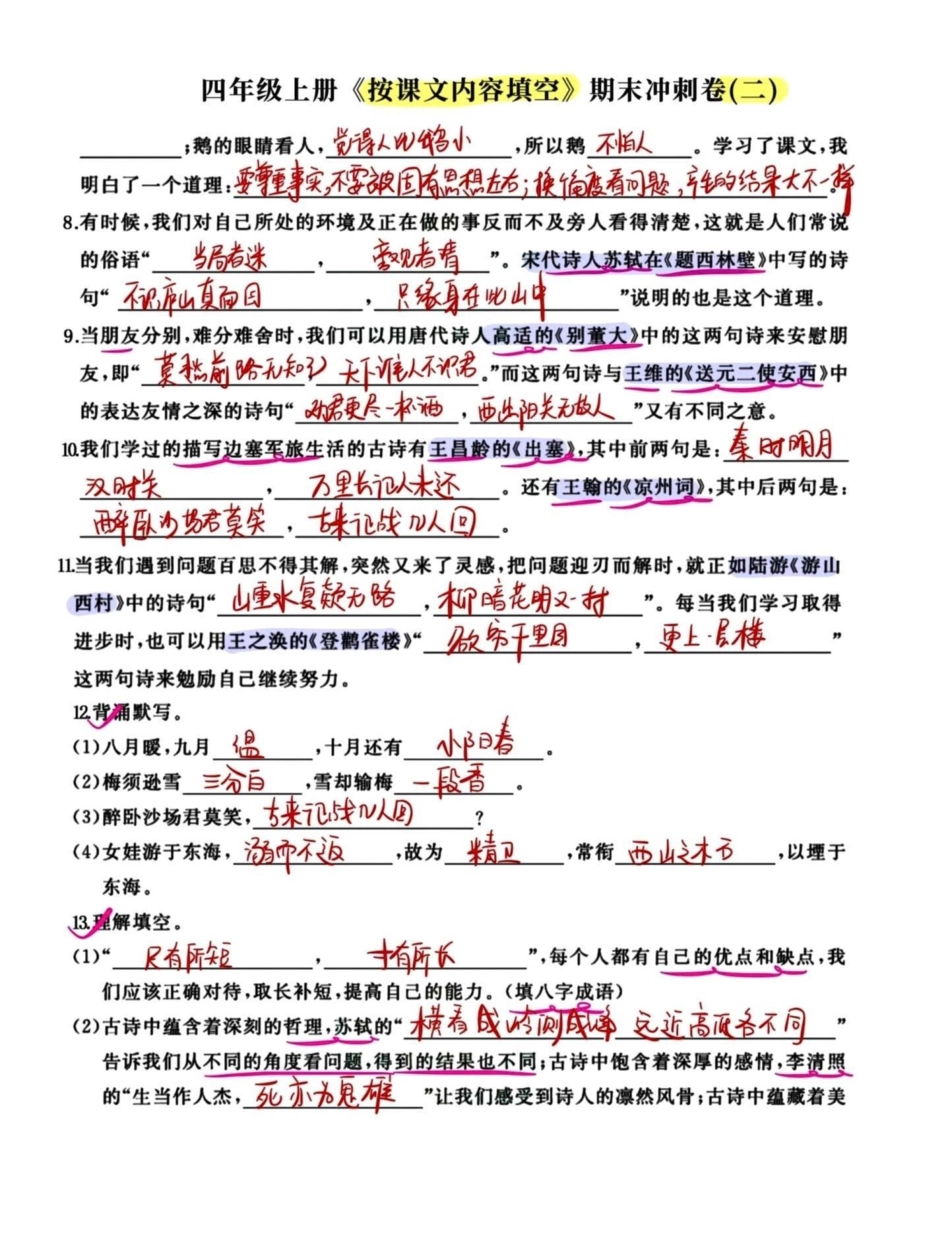 四年级上册《按课文内容填空》期末冲刺卷(二)
;鹅的眼睛看人,觉得人比鹅小,所以鹅不怕人。学习了课文,我
明白了一个道理:要尊重事实,不要被固有思想左右;换个角度看问题,产生的结果大不一样。
8.有时候,我们对自己所处的环境及正在做的事反而不及旁人看得清楚,这就是人们常说
的俗语“当局者迷,旁观者清”。宋代诗人苏轼在《题西林壁》中写的诗
句“不识庐山真面目,只缘身在此山中”说明的也是这个道理。
9.当朋友分别,难分难舍时,我们可以用唐代诗人高适的《别董大》中的这两句诗来安慰朋
友,即“莫愁前路无知己 天下谁人不识君。”而这两句诗与王维的《送元二使安西》中
的表达友情之深的诗句“劝君更尽一杯酒,西出阳关无故人”又有不同之意。
10.我们学过的描写边塞军旅生活的古诗有王昌龄的《出塞》,其中前两句是:秦时明月
汉时关,万里长征人未还。还有王翰的《凉州词》,其中后两句是:
醉卧沙场君莫笑,古来征战几人回。
11.当我们遇到问题百思不得其解,突然又来了灵感,把问题迎刃而解时,就正如陆游《游山
西村》中的诗句“山重水复疑无路,柳暗花明又一村”。每当我们学习取得
进步时,也可以用王之涣的《登鹳雀楼》“欲穷千里目,更上一层楼”
这两句诗来勉励自己继续努力。
12.背诵默写。
(1)八月暖,九月温,十月还有小阳春。
(2)梅须逊雪三分白,雪却输梅一段香。
(3)醉卧沙场君莫笑,古来征战几人回?
(4)女娃游于东海,溺而不返,故为精卫,常衔西山之木石,以堙于
东海。
13.理解填空。
(1)“尺有所短,寸有所长”,每个人都有自己的优点和缺点,我
们应该正确对待,取长补短,提高自己的能力。(填八字成语)
(2)古诗中蕴含着深刻的哲理,苏轼的“横看成岭侧成峰 远近高低各不同”
告诉我们从不同的角度看问题,得到的结果也不同;古诗中饱含着深厚的感情,李清照
的“生当作人杰,死亦为鬼雄”让我们感受到诗人的凛然风骨;古诗中蕴藏着美